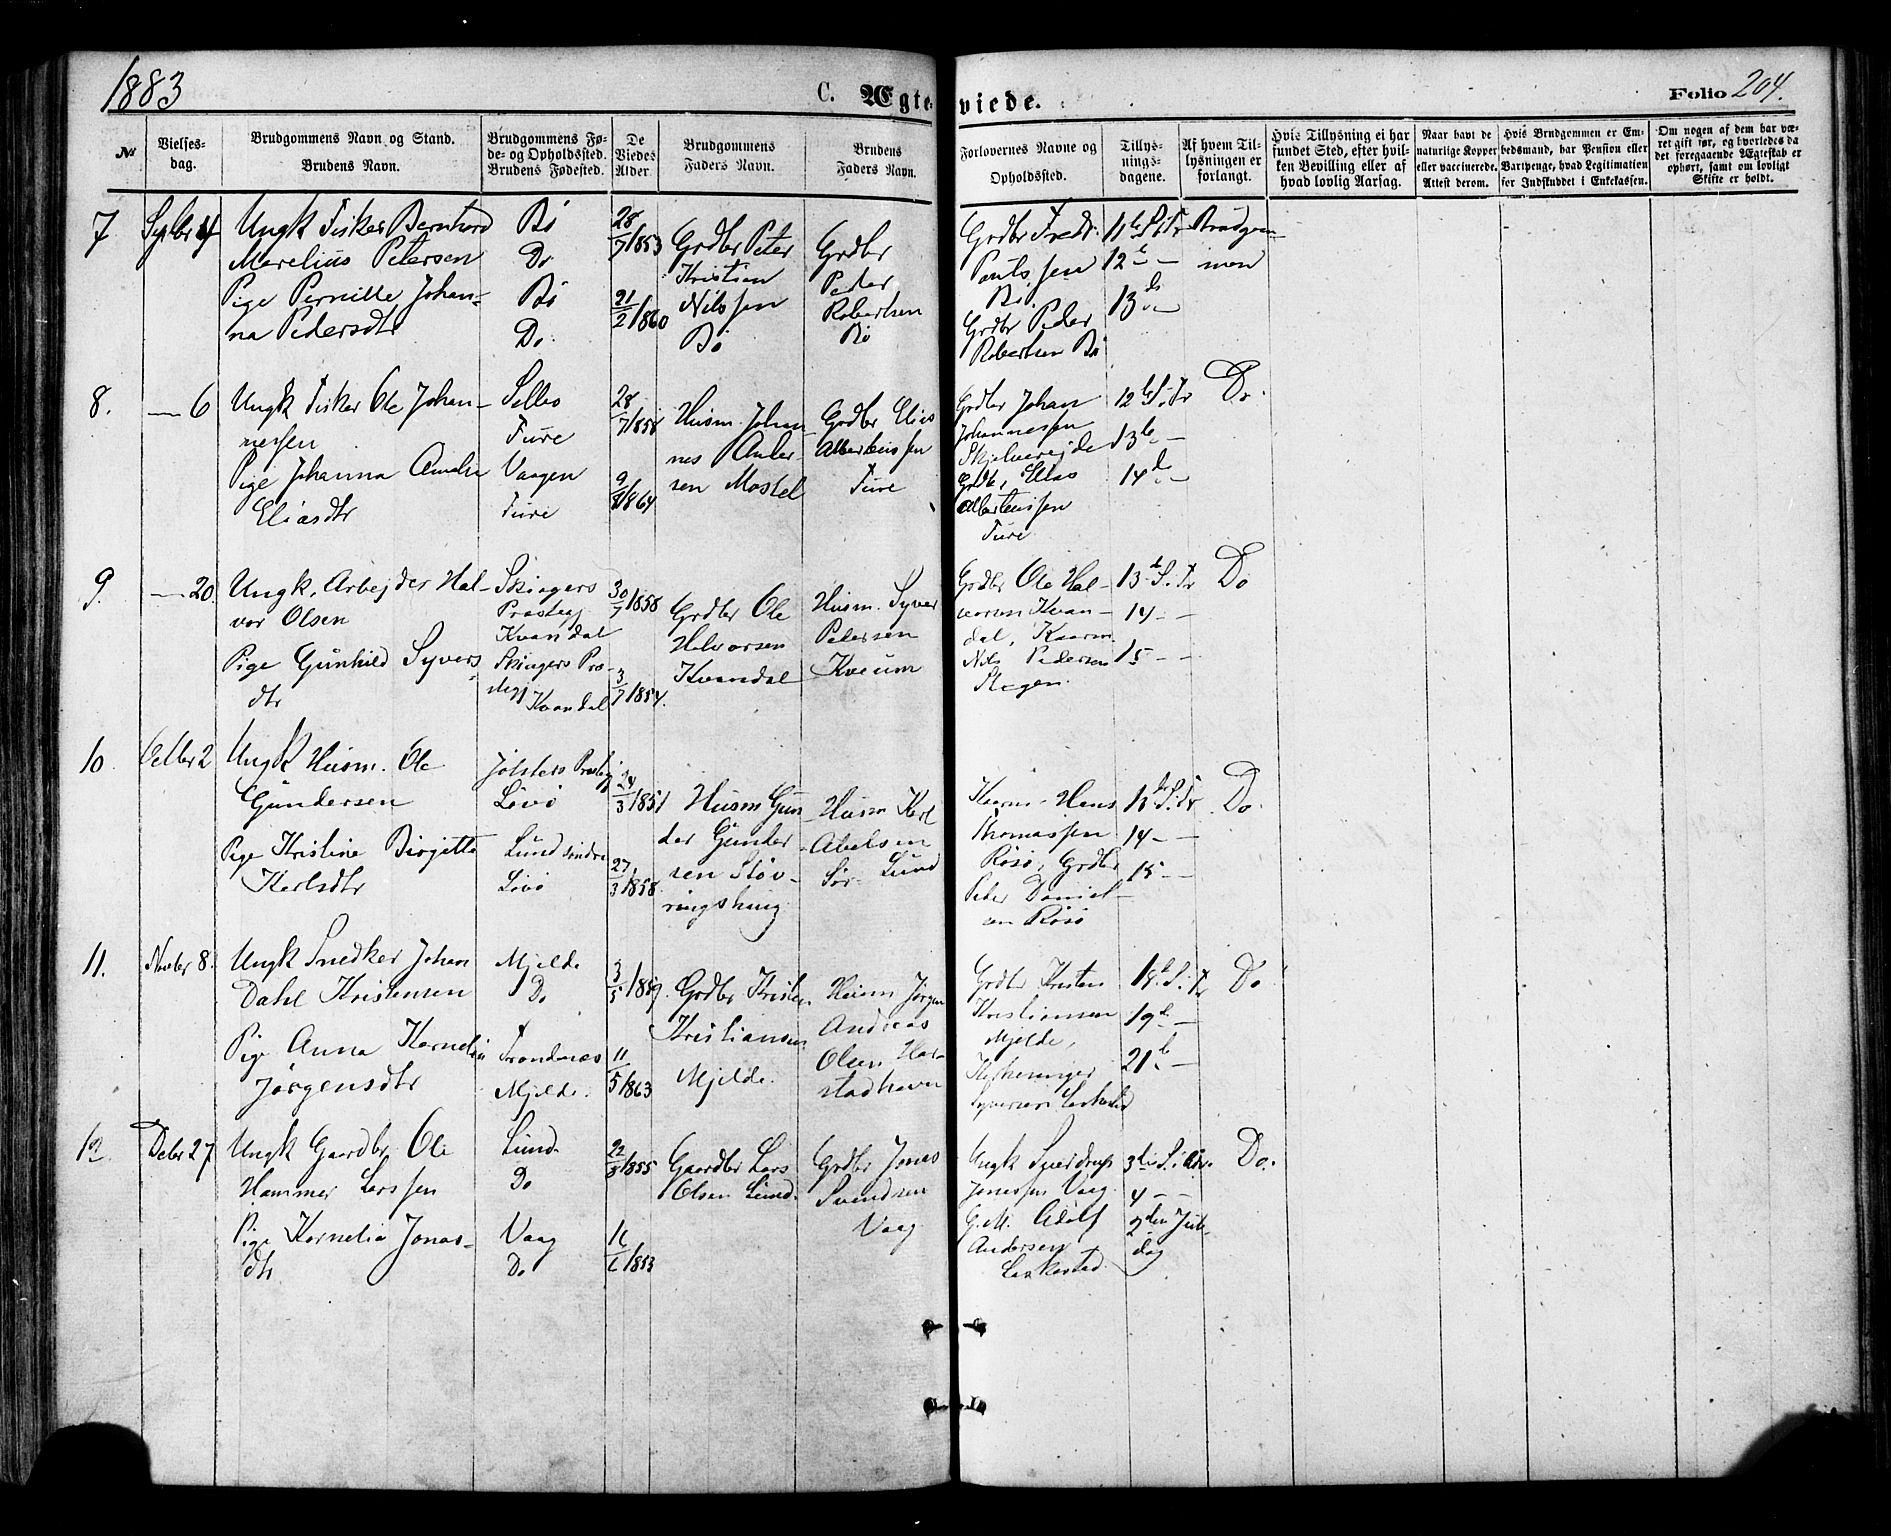 1883
C. Ægteviede.
Folio 204.
№
Vielses-
dag.
Brudgommens Navn og Stand.
Brudens Navn.
Brudgommens Fø-
de- og Opholdssted.
Brudens Fødested.
De
Viedes
Alder.
Brudgommens
Faders Navn.
Brudens
Faders Navn.
Forlovernes Navne og
Opholdssted.
Tillys-
nings-
dagene.
Af hvem Til-
lysningen er
forlangt.
Hvis Tillysning ei har
fundet Sted, efter hvil-
ken Bevilling eller af
hvad lovlig Aarsag.
Naar havt de
naturlige Kopper
eller vaccinerede.
Attest derom.
Hvis Brudgommen er Em-
bedsmand, har Pension eller
Vartpenge, hvad Legitimation
for Indskuddet i Enkekassen.
Om nogen af dem har væ-
ret gift før, og hvorledes da
det foregaaende Ægteskab er
ophørt, samt om lovligt
Skifte er holdt.
7
Septbr 4
Ungk Fisker Bernhard
Marelius Petersen
Pige Pernille Johan-
na Pedersdtr
Bö
Do
Bö
Do.
28/7 1853
21/2 1860
Grdbr Peter
Kristian
Nilssen
Bö
Grdbr
Peder
Robertsen
Bö
Grdbr Fredr.
Paulssen
Bö.
Grdbr Peder
Robertsen Bö
11te S. i Tr
12te — —
13de — —
Brudgom-
men
8.
— 6
Ungk Fisker Ole Johan-
nessen
Pige Johanna Amalie
Eliasdtr
Selles
Ture
Vaagen
Ture
28/7 1858
9/8 1864
Husm. Johan-
nes Ander-
sen Mostel
Grdbr Elias
Albertenssen
Ture
Grdbr Johan
Johannessen
Skjelverejde
Grdb, Elias
Albertenssen
Ture
12te S. i Tr
13de —
14de —
Do.
9.
— 20.
Ungk. Arbejder Hal-
vor Olsen
Pige Gunhild Syvers-
dtr
Skiagers
Prestegj
Kvandal
Skiagers Pre-
stegj
Kvandal
30/7 1858
3/7 1854.
Grdbr Ole
Halvorsen
Kvandal
Husm. Syver
Petersen
Kveum
Grdbr Ole Hal-
vorsen Kvan-
dal, Kaarm.
Nils Pedersen
Stegen.
13de S. i Tr
14 — —
15 — —
Do
10.
Octbr 2
Ungk Husm. Ole
Gundersen
Pige Kristine Birgitte
Karlsdtr
Jølsters Prestegj
Lövö
Lund söndre
Lövö
24/3 1851
27/3 1858.
Husm Gun-
der Gunder-
sen Stöv-
ringshaug
Husm Karl
Abelsen
Sör-Lund
Kaarm. Hans
Thomassen
Rösö, Grdbr
Peder Daniel-
sen Rösö
13de S. i Tr.
14 — —
15 — —
Do.
11.
Novbr 8.
Ungk Snedker Johan
Dahl Kristensen
Pige Anna Kornelia
Jörgensdtr
Mjelde
Do
Trondenes
Mjelde.
3/5 1859.
11/5 1863
Grdbr Kristen
Kristiansen
Mjelde.
Husm Jörgen
Andreas
Olsen Har-
stadhavn
Grdbr Kristen
Kristiansen
Mjelde,
Syversen Leskestad
18de S. i Tr
19de —
21de —
Do
12.
Decbr 27
Ungk Gaardbr, Ole
Hammer Larssen
Pige Kornelia Jonas-
dtr
Lund.
Do
Vaag
Do
22/8 1855
16/6 1853
Gaardbr Lars
Olsen Lund.
Grdbr Jonas
Svendsen
Vaag
Ungk Sverdrup
Jonassen Vaag
G. M. Adolf
Andersen
Leskestad.
3die S. i Adv.
4 — —
2den Jule-
dag
Do.